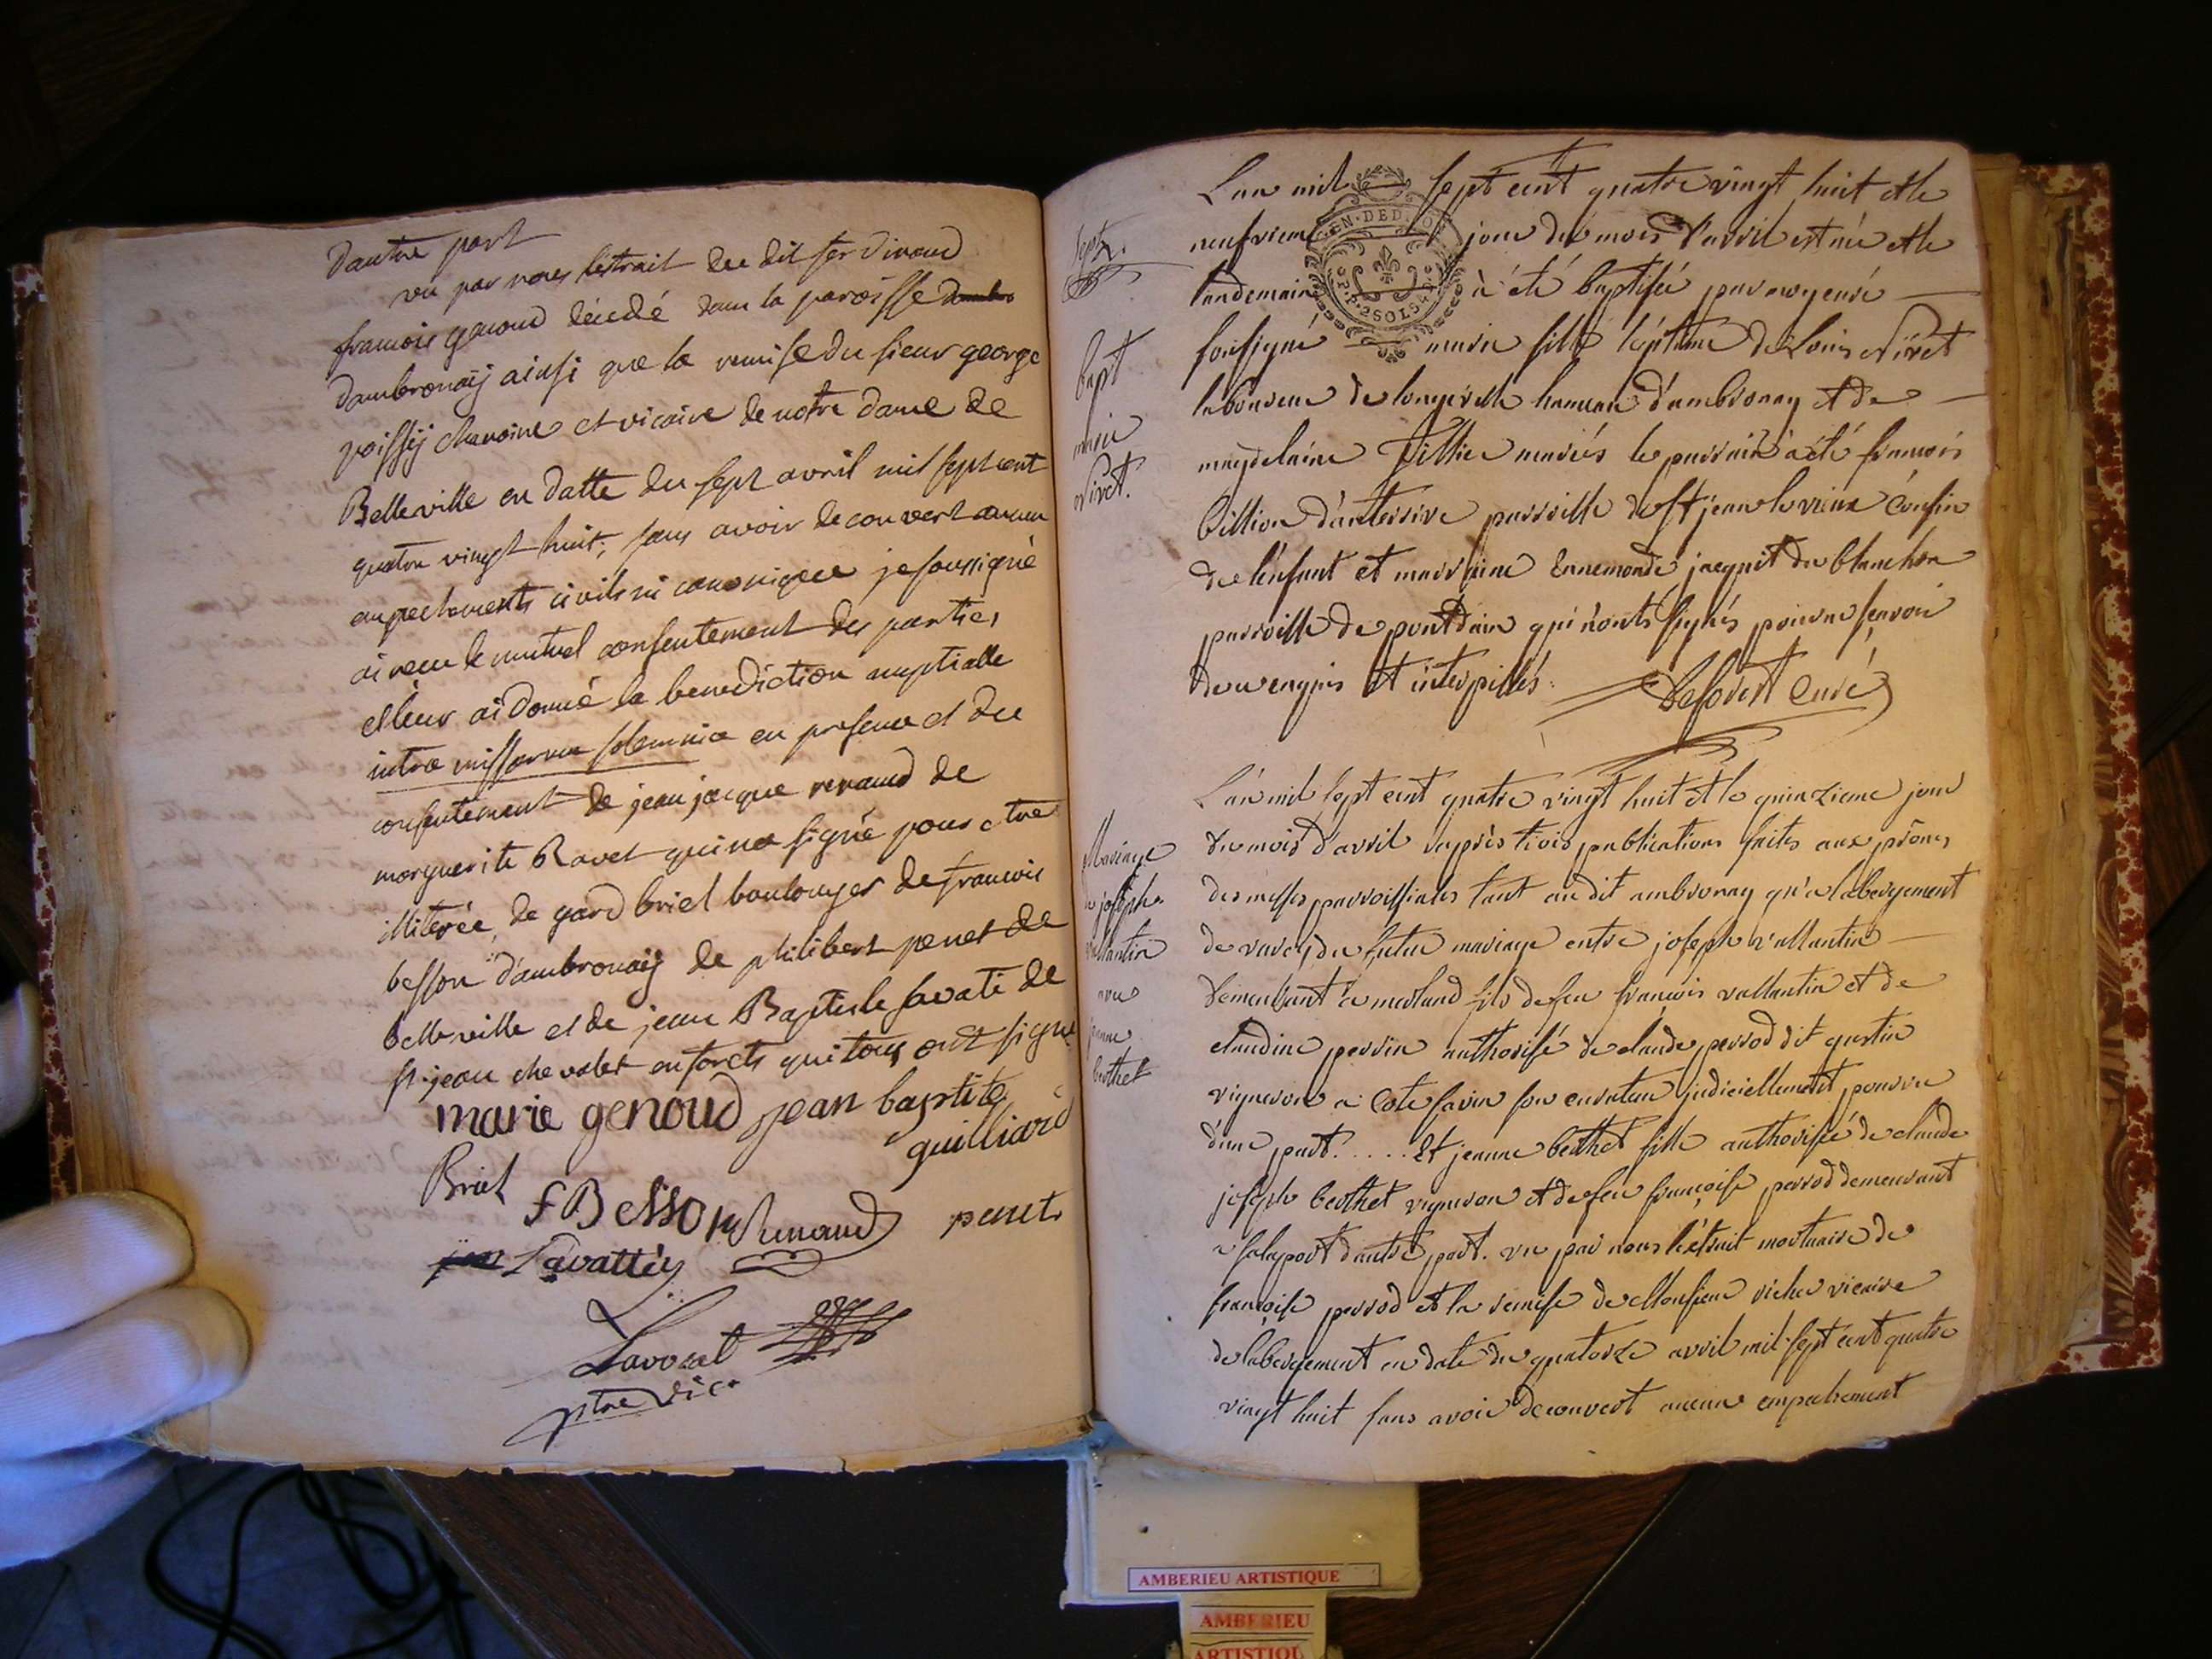 d'autre part
vu par nous lextrait du dit ferdinand
francois genoud décédé dans la paroisse
dambronaÿ ainsi que la remise du sieur george
voissÿ chanoine et vicaire de notre dame de
Belleville en datte du sept avril mil sept cent
quatre vingt huit, sans avoir decouvert aucun
empechements civils ni canonique je soussigné
ai recu le mutuel consentement des parties
et leur ai donné la benediction nuptialle
intra missarum solemnia en presence et du
consentement de jean jacque renaud de
marguerite Ravet qui na signé pour etre
illiterée, de gard briel boulonger de francois
besson d'ambronaÿ de philibert penet de
belleville et de jean Baptiste savati de
st jean chevalet en forets qui tous ont signé
marie genoud jean baptiste
guilliard
Briel
f Besson Renaud penet
Savattéy
Lavorel
ptre vic.
L'an mil sept cent quatre vingt huit et le
neufvieme jour du mois d'avril est née et le
landemain à été baptisée par moy curé
soussigné marie fille légitime de Louis Nivet
laboureur de longeville hameau d'ambronay et de
magdelaine Tillier mariés le parrain à été françois
billion d'auterrive parroisse de St jean le vieux cousin
de l'enfant et marraine Ennemonde jacquit de blanchon
parroisse de pontdain qui n'onts signés pour ne sçavoir
de ce enquis et interpellés.
Lefort curé
Sept.
bapt
marie
Nivet.
L'an mil sept cent quatre vingt huit et le quinzieme jour
du mois d'avril après trois publications faites aux prônes
des messes parroissiales tant au dit ambronay qu'a labergement
de varey du futur mariage entre joseph vallantin
demeurant a merland fils de feu françois vallantin et de
claudine perrin authorisé de claude perrod dit gustin
vigneron a Cote savin son curateur judiciellement pourvu
d'une part. .... Et jeanne berthet fille authorisée de claude
joseph berthet vigneron et de feu françoise perrod demeurant
a salaport d'autre part. vu par nous l'étrait mortuaire de
françoise perrod et la remise de Monsieur richer vicaire
de labergement en date du quatorze avril mil sept cent quatre
vingt huit sans avoir decouvert aucun empechement
Mariage
de joseph
vallantin
avec
jeanne
berthet
EN. DED.
2SOLS
AMBERIEU ARTISTIQUE
AMBERIEU
ARTISTIQU